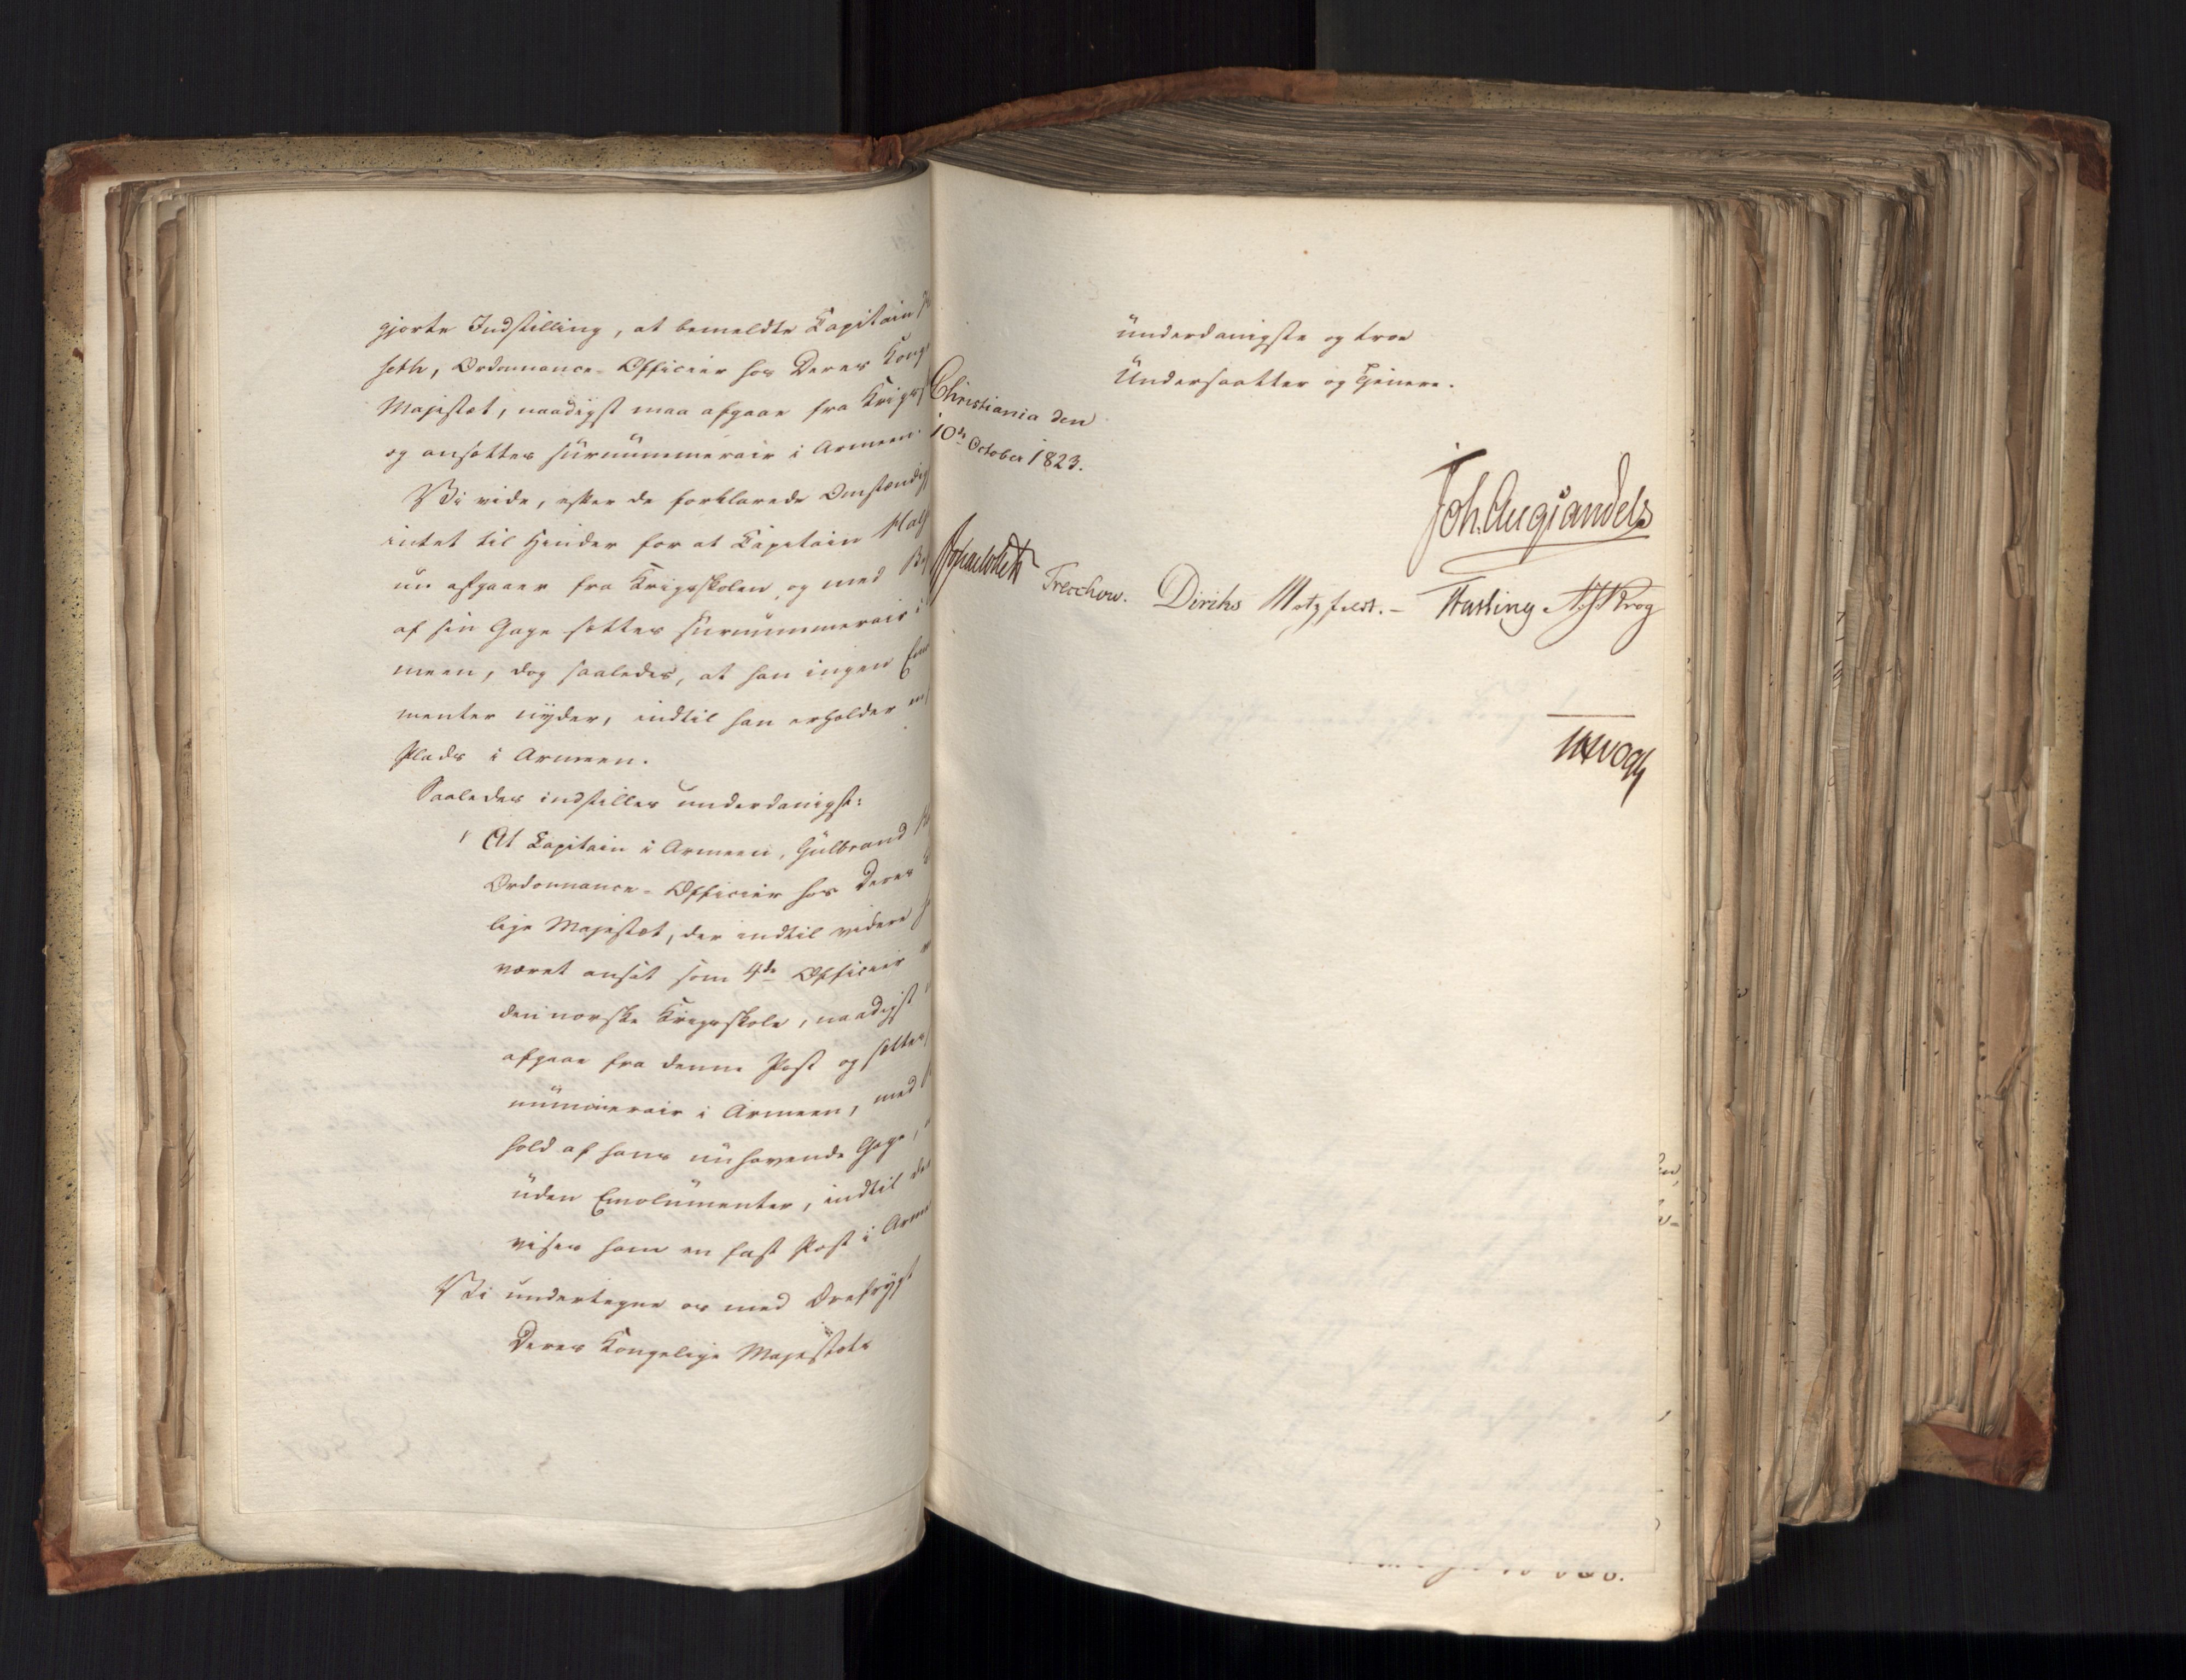 gjorte Indstilling, at bemeldte Capitain
seth, Ordonnance-Officier hos Deres Kong
Majestæt, naadigst maa afgaae fra Krigs
og ansættes surnummerair i Armeen.
Vi vide, efter de forklarede Omstændig
intet til Hinder for at Capitain
nu afgaaer fra Krigsskolen, og med
af sin Gage sættes surnummerair i
meen, dog saaledes, at han ingen
menter nyder, indtil han erholder
Plads i Armeen.
Saaledes indstilles underdanigst:
At Capitain i Armeen, Gulbrand
Ordonnance-Officier hos Deres
lige Majestæt, der indtil videre
været ansat som 4de Officier
den norske Krigsskole, naadigst
afgaae fra denne Post og sættes
nummerair i Armeen, med
hold af hans nuhavende Gage,
uden Emolumenter, indtil der
vises ham en fast Post i Arme
Vi undertegne os med Ærefrygt
Deres Kongelige Majestæts
underdanigste og troe
Undersaatter og Tjenere.
Christiania den
10de October 1823.
Joh. Aug Sandels
Treschow. Diriks Motzfeldt. - Fasting Krog
Vogt